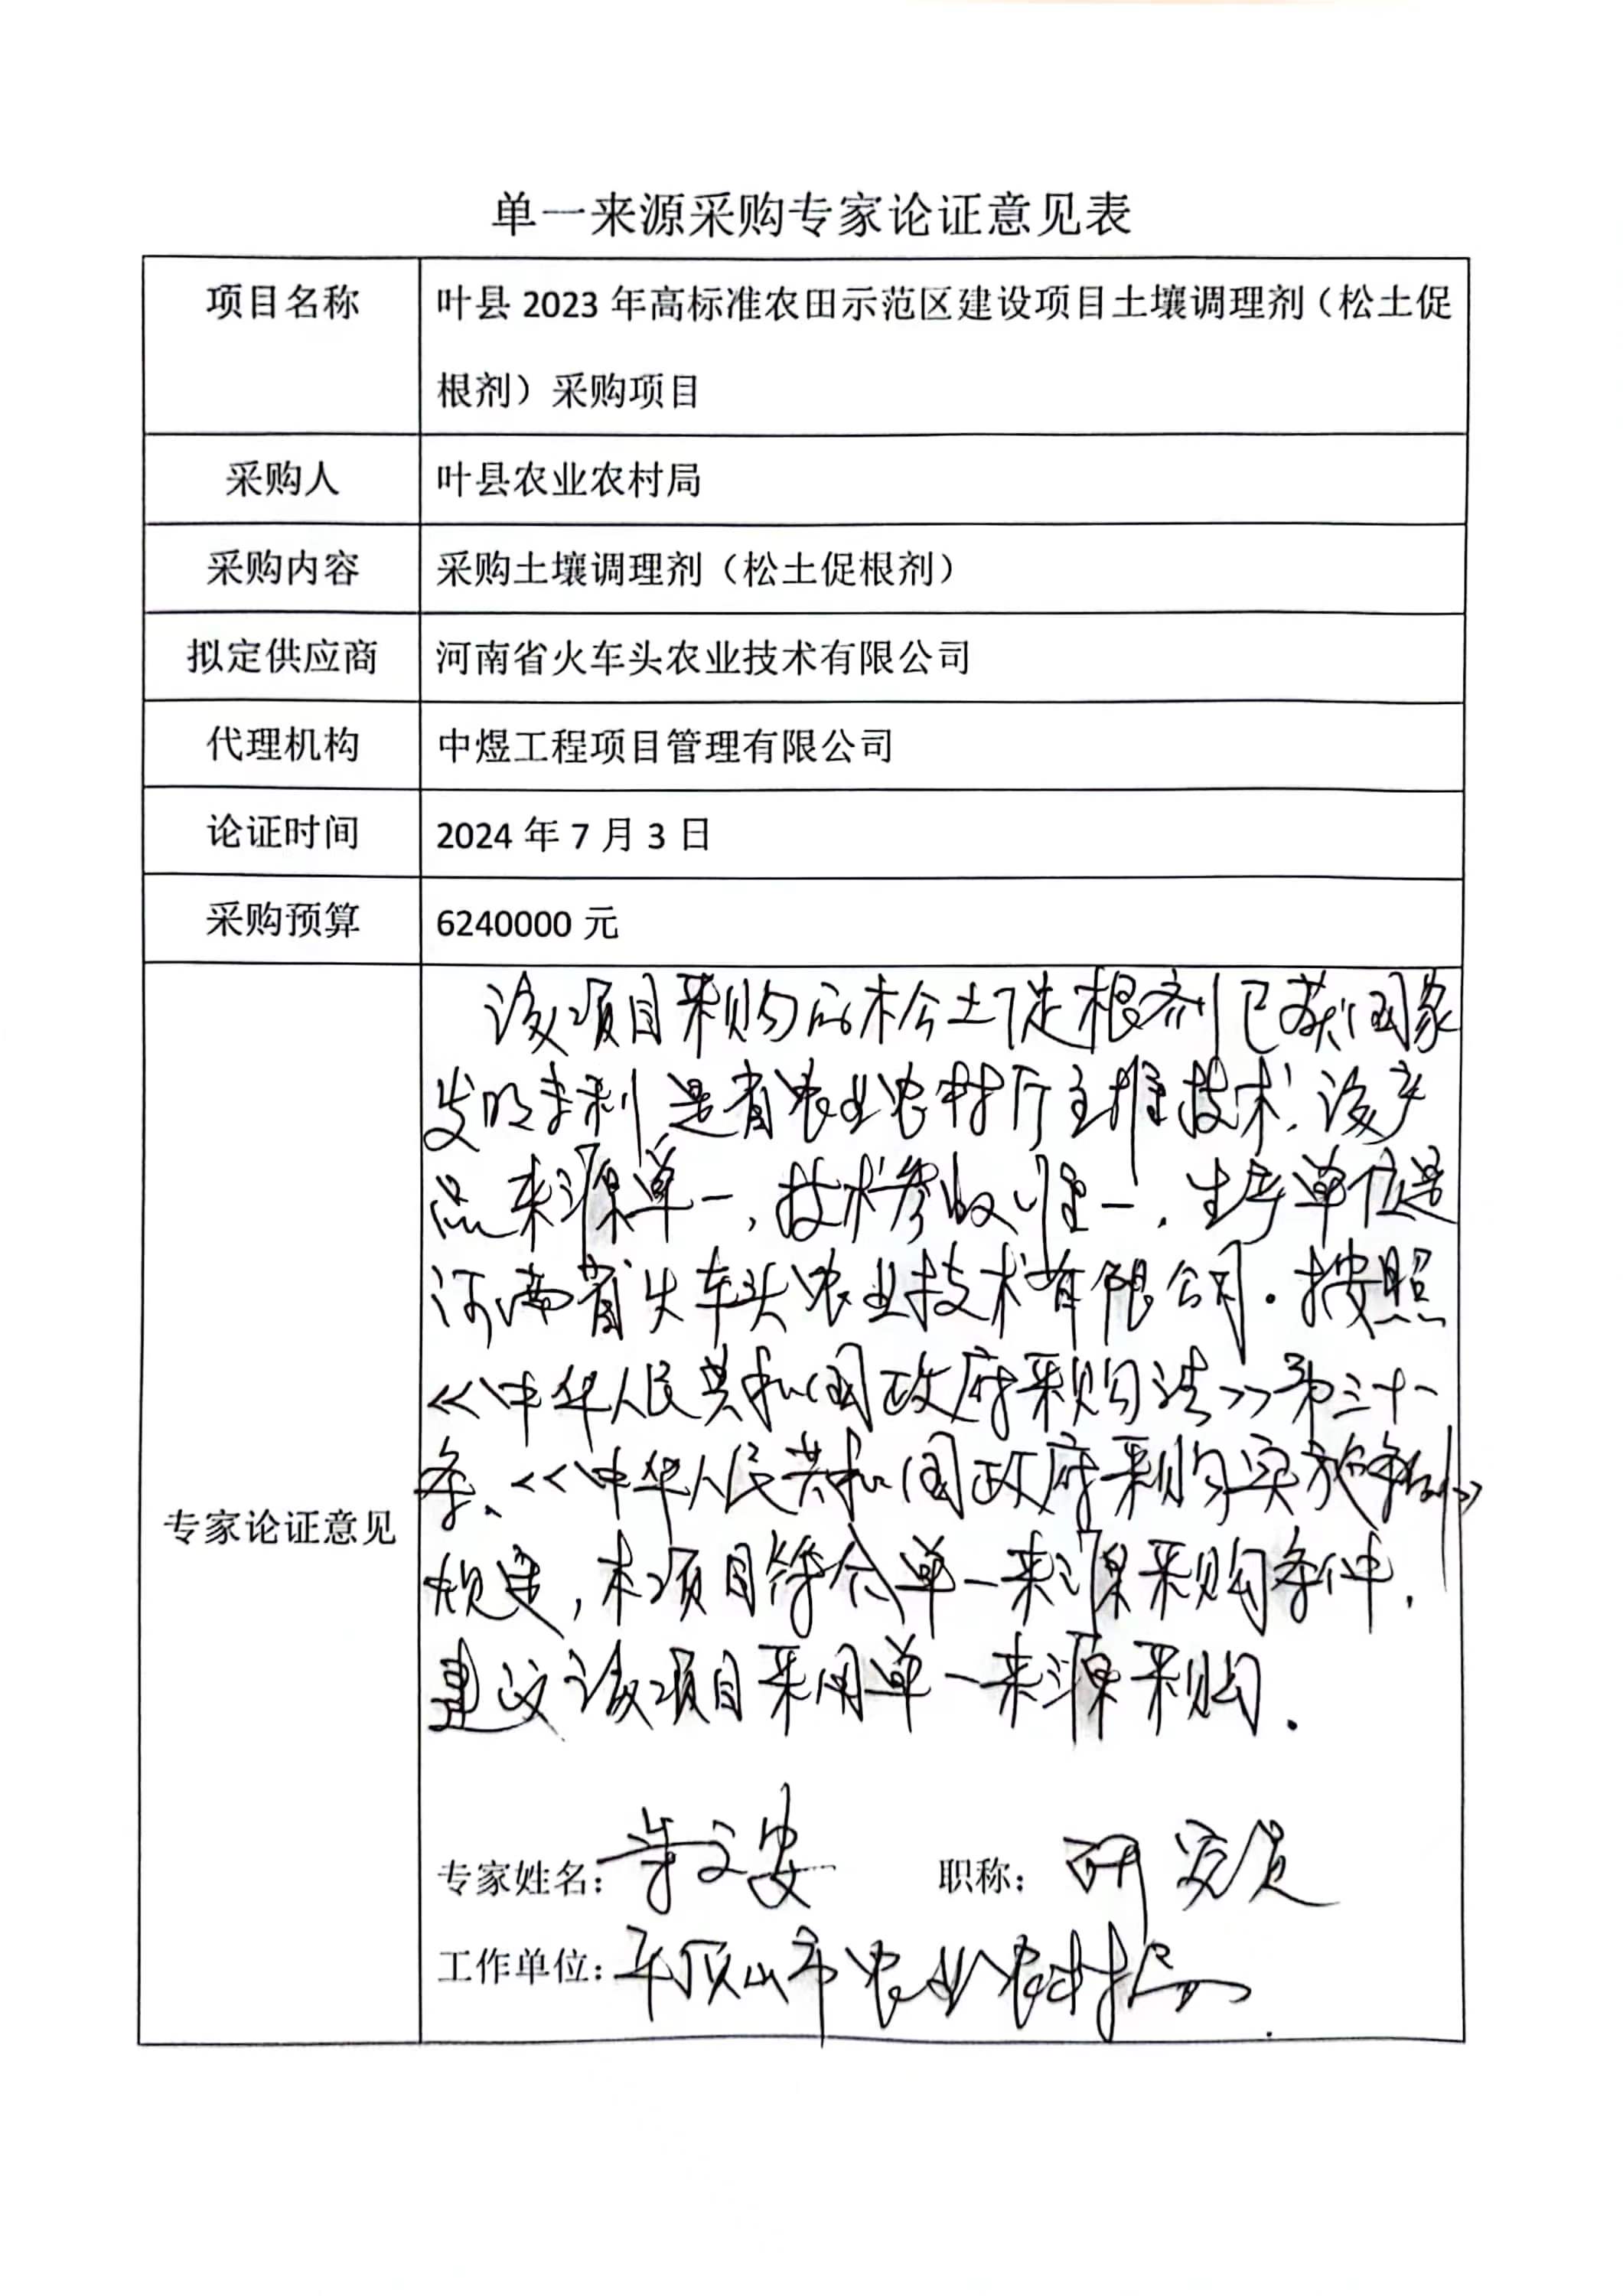 单一来源采购专家论证意见表
项目名称
叶县 2023 年高标准农田示范区建设项目土壤调理剂（松土促
根剂）采购项目
采购人
叶县农业农村局
采购内容
采购土壤调理剂（松土促根剂）
拟定供应商
河南省火车头农业技术有限公司
代理机构
中煜工程项目管理有限公司
论证时间
2024 年 7 月 3 日
采购预算
6240000 元
专家论证意见
该项目采购的松土促根剂已获国家
发明专利是省农业农村厅主推技术，该产
品来源单一，技术参数唯一，生产单位是
河南省火车头农业技术有限公司。按照
<<中华人民共和国政府采购法>>第三十一
条、<<中华人民共和国政府采购实施条例>>
规定，本项目符合单一来源采购条件，
建议该项目采用单一来源采购.
专家姓名： 文安 职称： 研究员
工作单位：平顶山市农业农村局